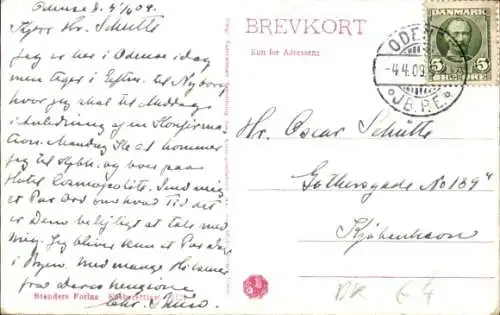 Odense d. 4/4 09.
Kjære Hr. Schütte
Jeg er her i Odense i dag
men tager i Efterm. til Nyborg
hvor jeg skal til Middag
i Anledning af en Konfirma
tion. Mandag Kl. at kommer
jeg til Kjbh. og boer paa
Hotel Cosmopolite. Send mig
et Par Ord om hvad Tid det
er Dem belejligt at tale med
mig. Jeg bliver kun et Par dage
i Byen. Med mange Hilsner
fra deres hengivne
Chr.
Stenders Forlag
BREVKORT
Kun for Adressen:
DANMARK
5 5
ODENSE
-4.4.09.
JB.P.E.
Hr. Oscar Schütte
Gothersgade No 139
Kjøbenhavn
BK 64